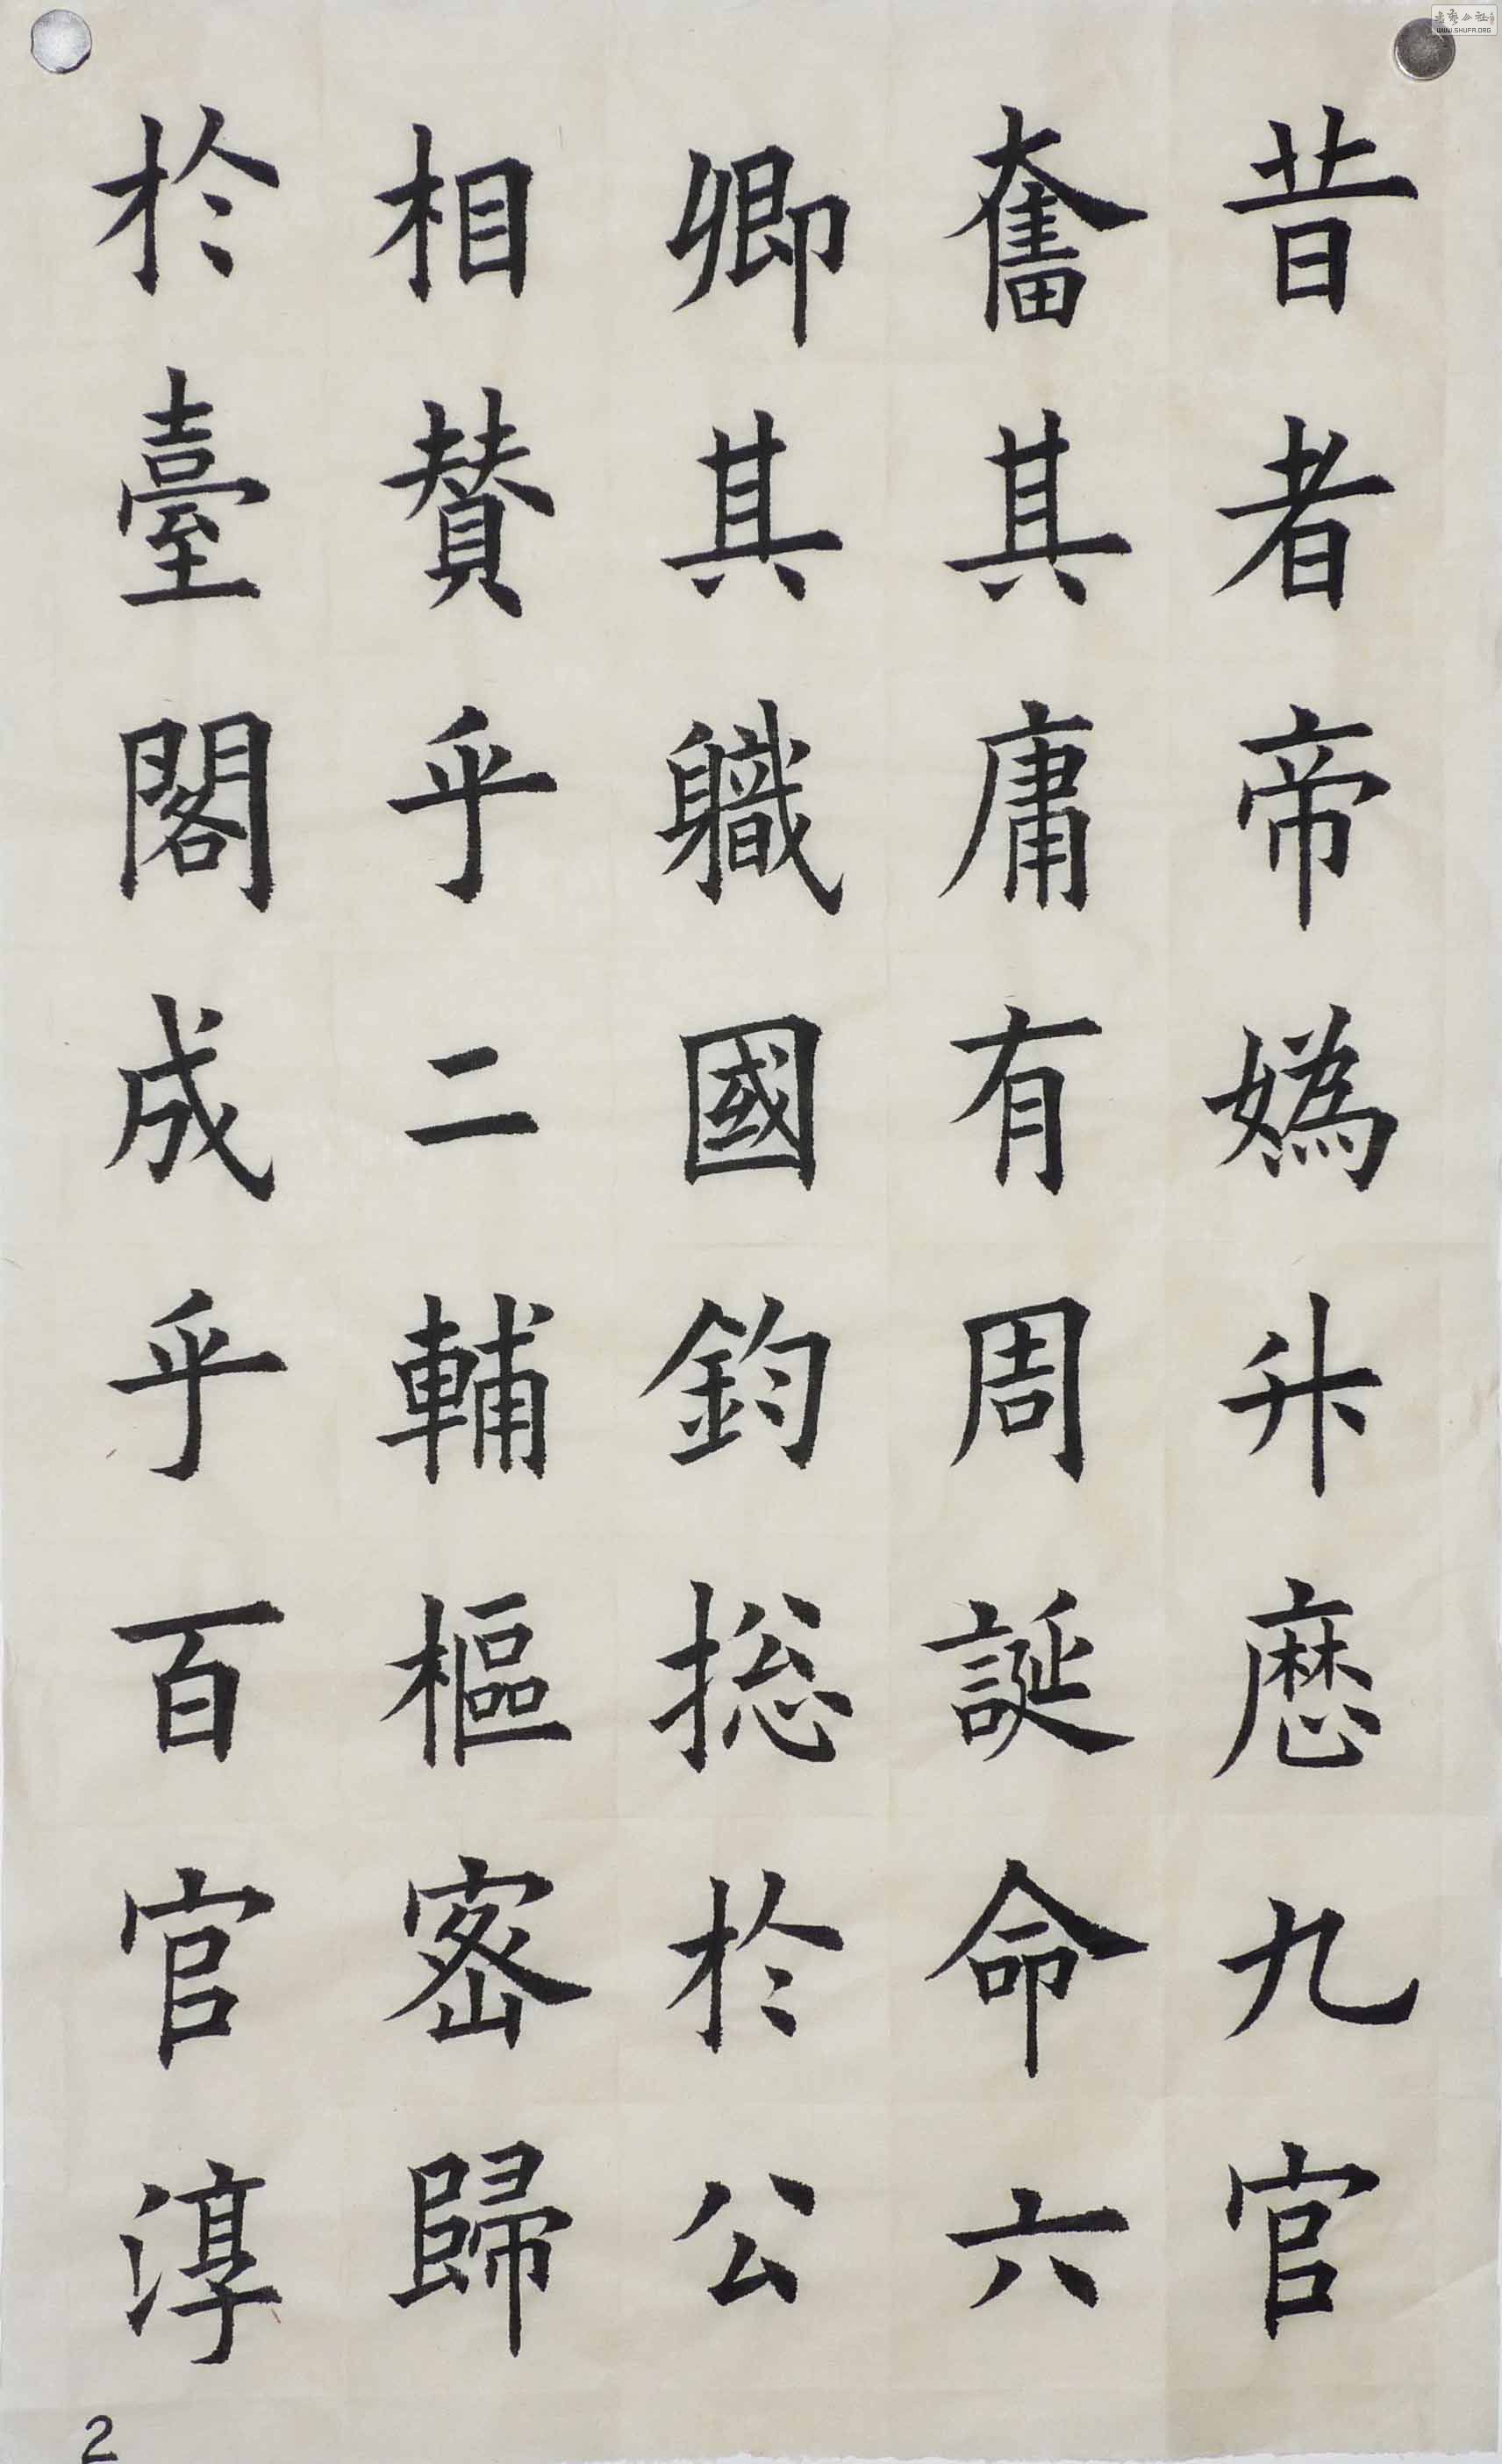 昔者帝媯升歷九官
奮其庸有周誕命六
卿其職國鈞摠於公
相贊乎二輔樞密歸
於臺閣成乎百官淳
2
WWW.SHUFA.ORG